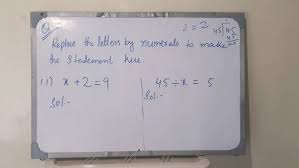 Replace the letters by numerals to make
the statement here
(i) x + 2 = 9
Sol:-
45 ÷ x = 5
Sol:-